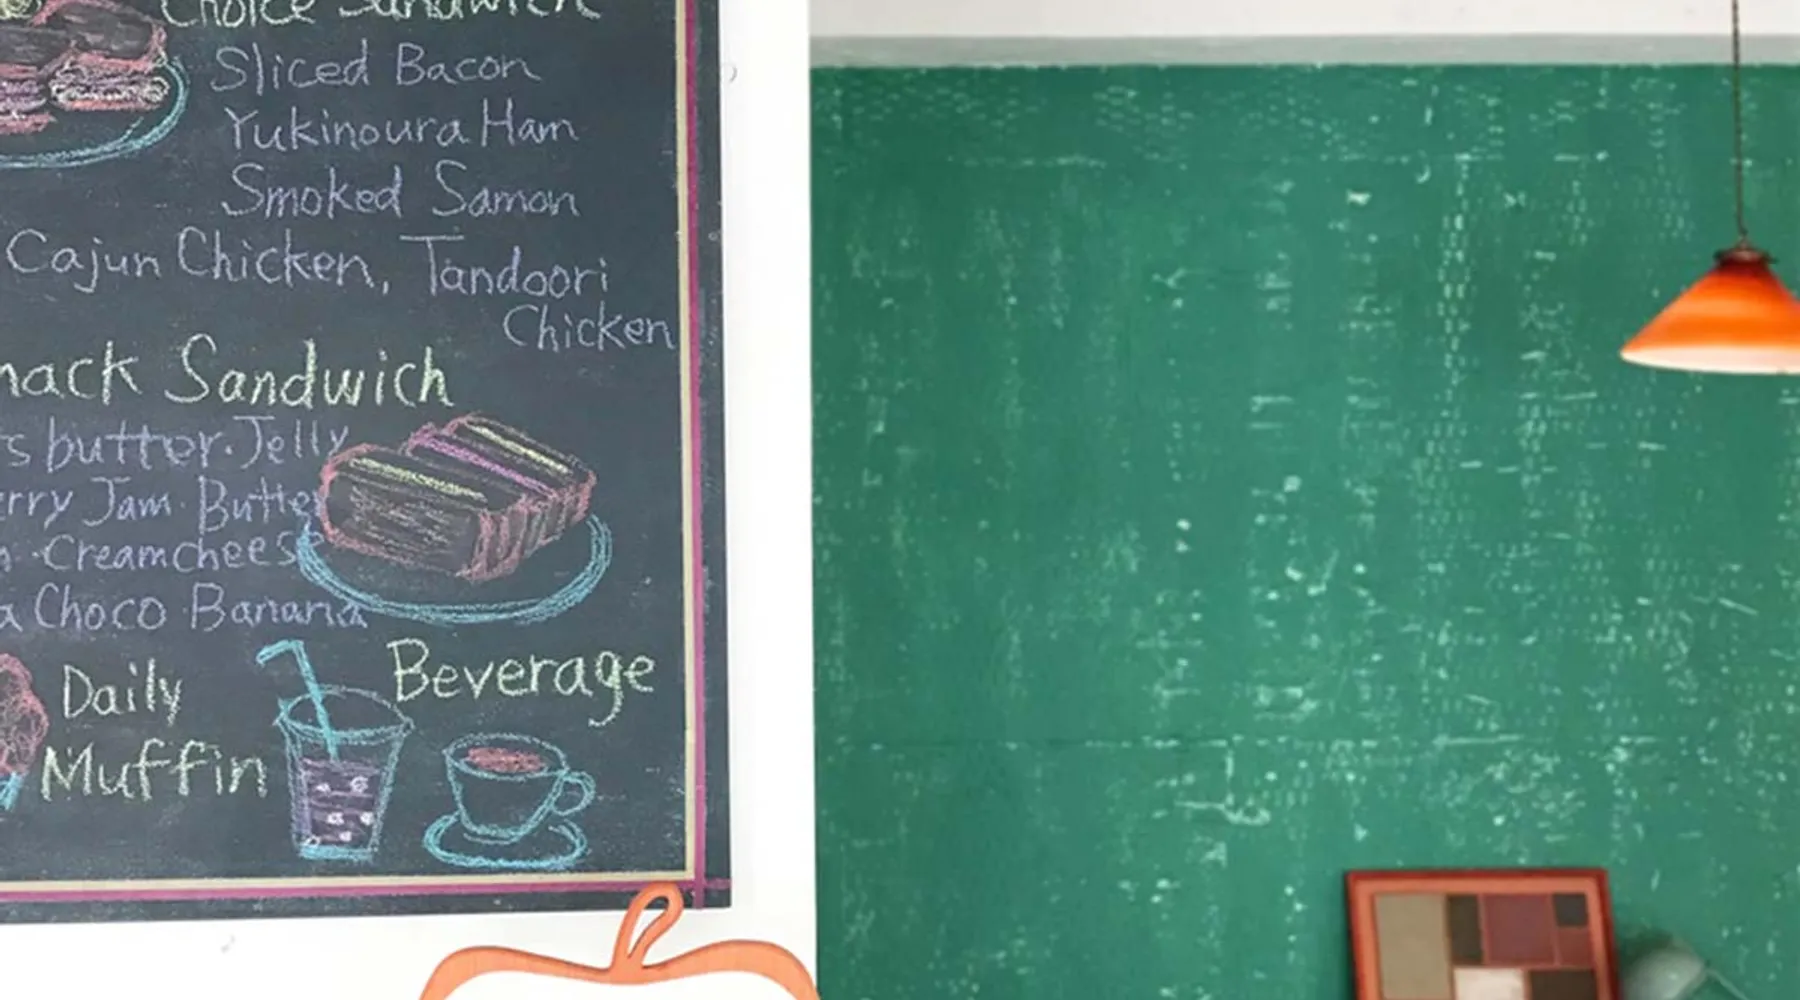 Choice Sandwich
Sliced Bacon
Yukinoura Ham
Smoked Samon
Cajun Chicken, Tandoori
Chicken
Sandwich
butter・Jelly
Jam・Butter
・Creamcheese
Choco Banana
Daily
Muffin
Beverage